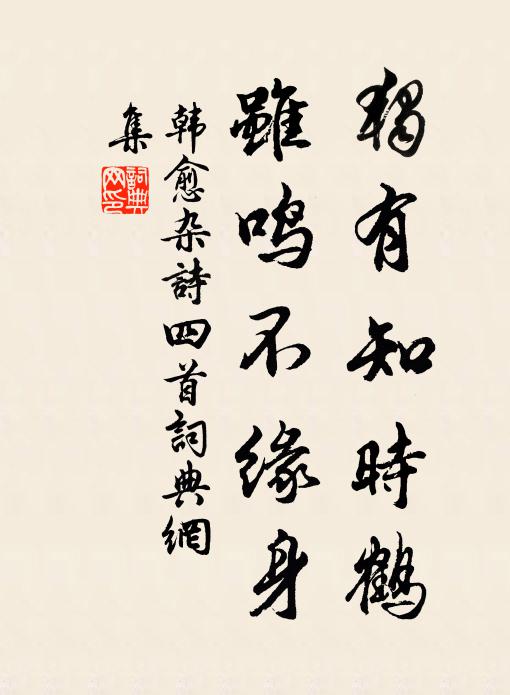 獨有知時鶴
雖鳴不緣身
韩愈杂詩四首詞典網
集
詞典網印